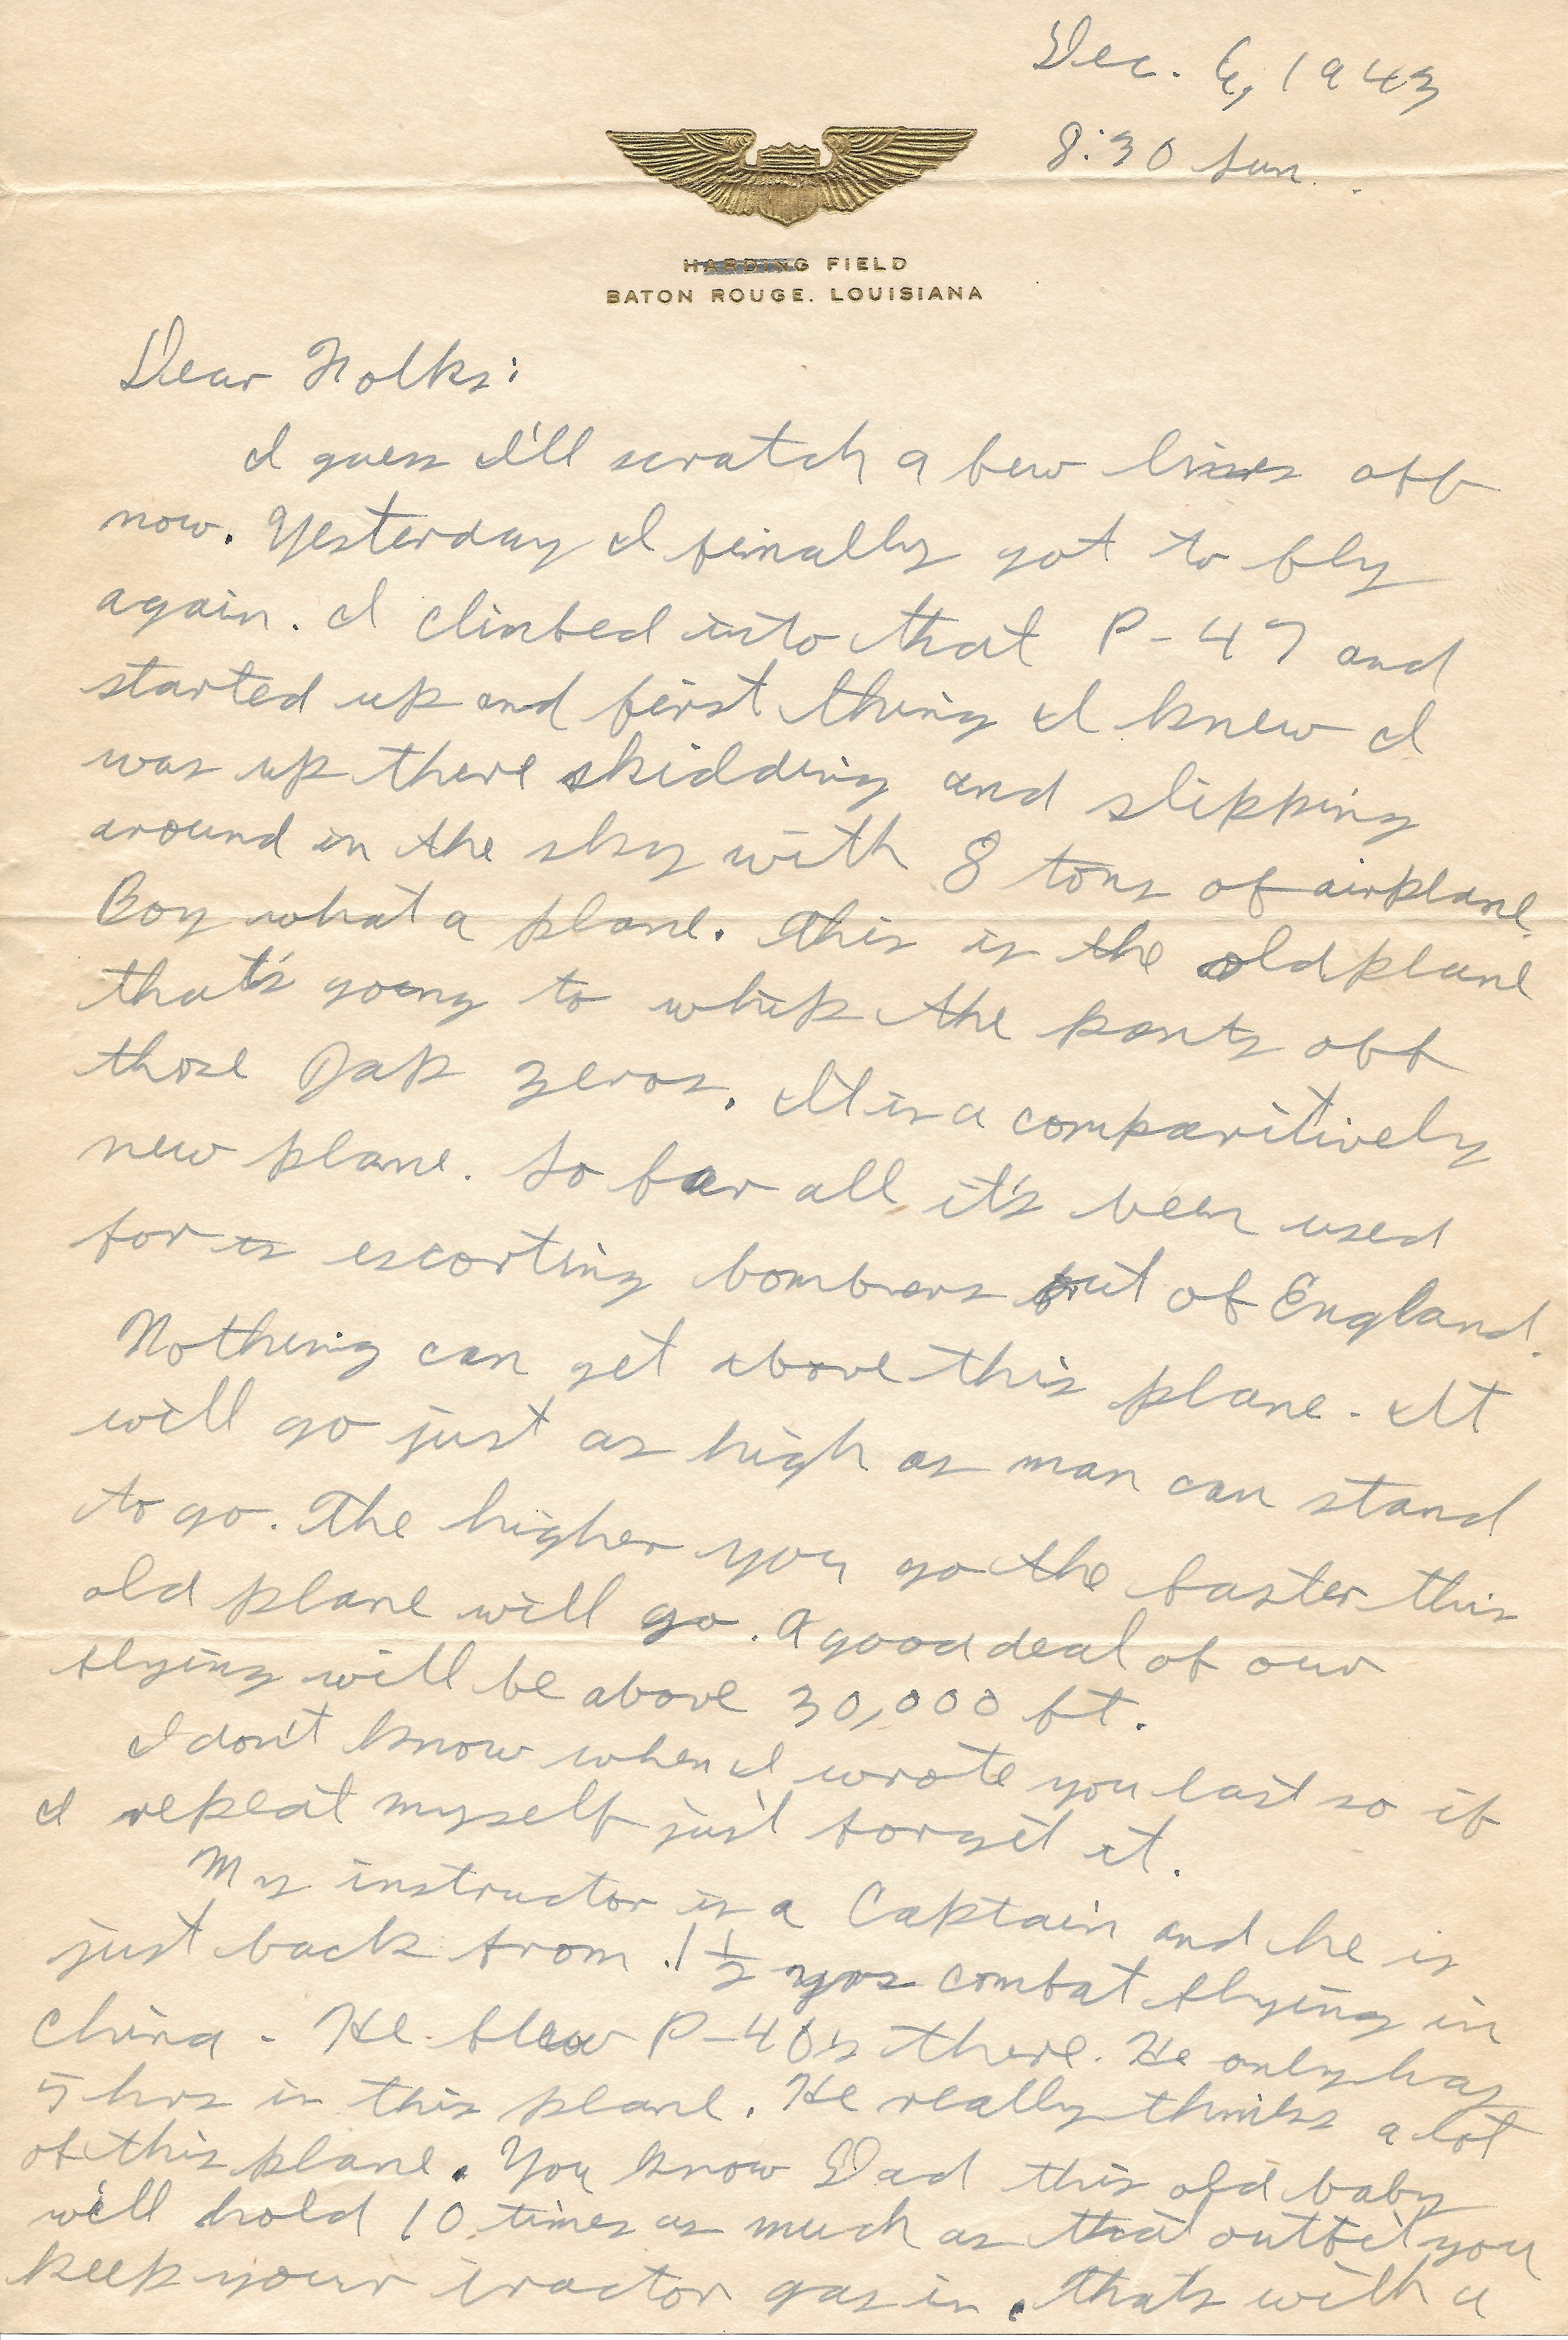 Dec. 6, 1943
8:30 Sun.
HARDING FIELD
BATON ROUGE, LOUISIANA
Dear Folks:
I guess I'll scratch a few lines off
now. Yesterday I finally got to fly
again. I climbed into that P-47 and
started up and first thing I knew I
was up there skidding and slipping
around in the sky with 8 tons of airplane.
Boy what a plane. This is the old plane
that's going to whip the pants off
those Jap zeros. It is a comparitively
new plane. So far all it's been used
for is escorting bombers out of England.
Nothing can get above this plane. It
will go just as high as man can stand
to go. The higher you go the faster this
old plane will go. A good deal of our
flying will be above 30,000 ft.
I don't know when I wrote you last so if
I repeat myself just forget it.
My instructor is a Captain and he is
just back from 1 1/2 yrs combat flying in
China. He flew P-40's there. He only has
5 hrs in this plane. He really thinks a lot
of this plane. You know Dad this old baby
will hold 10 times as much as that outfit you
keep your tractor gas in. Thats with a